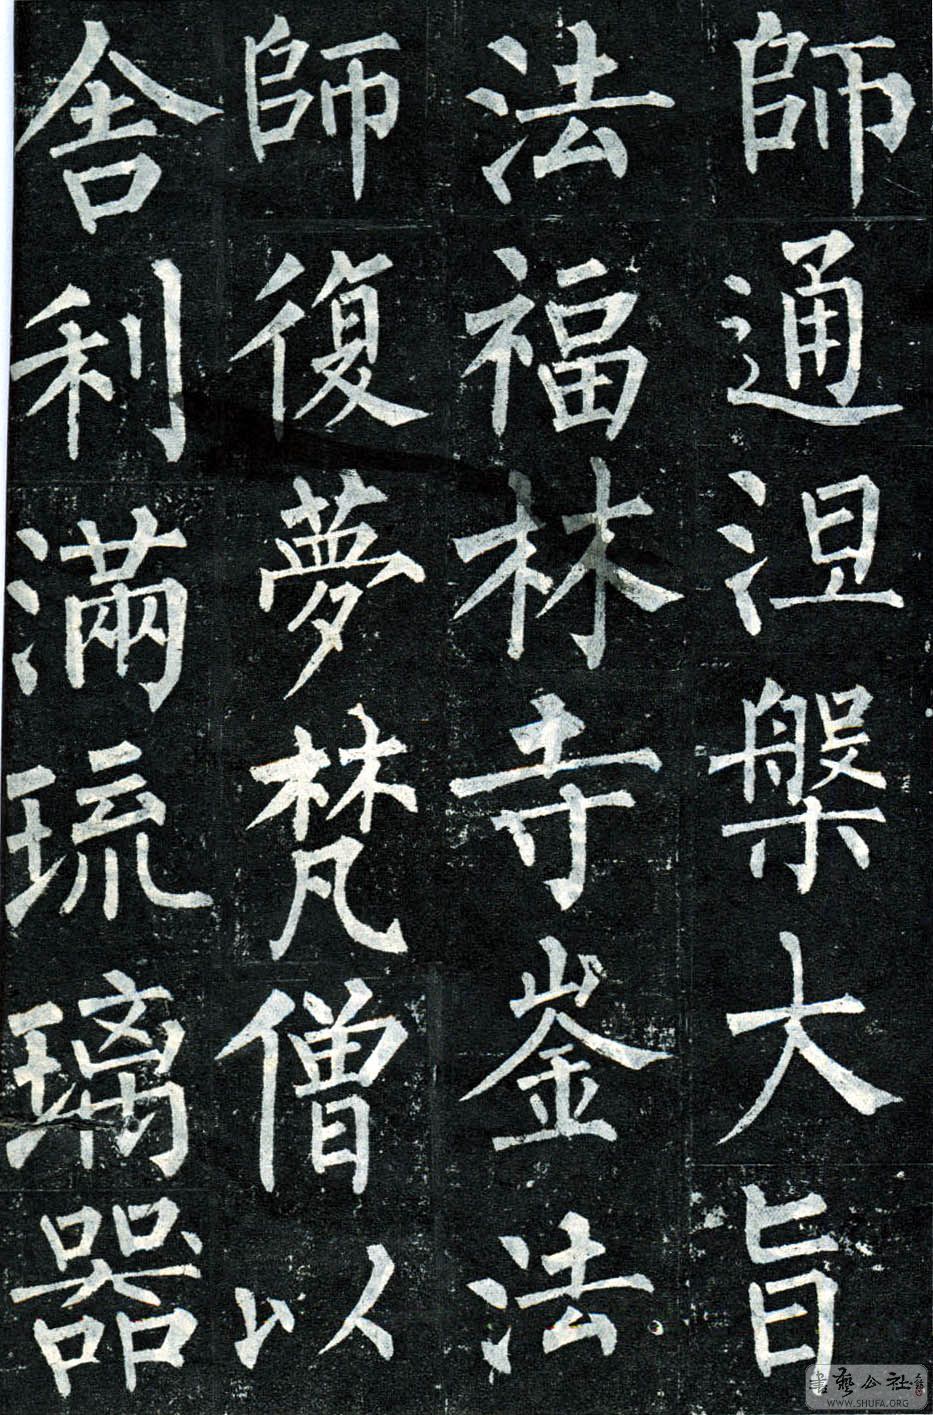 師通涅槃大旨
法福林寺崟法
師復夢梵僧以
舍利滿琉璃器
書藝公社
WWW.SHUFA.ORG